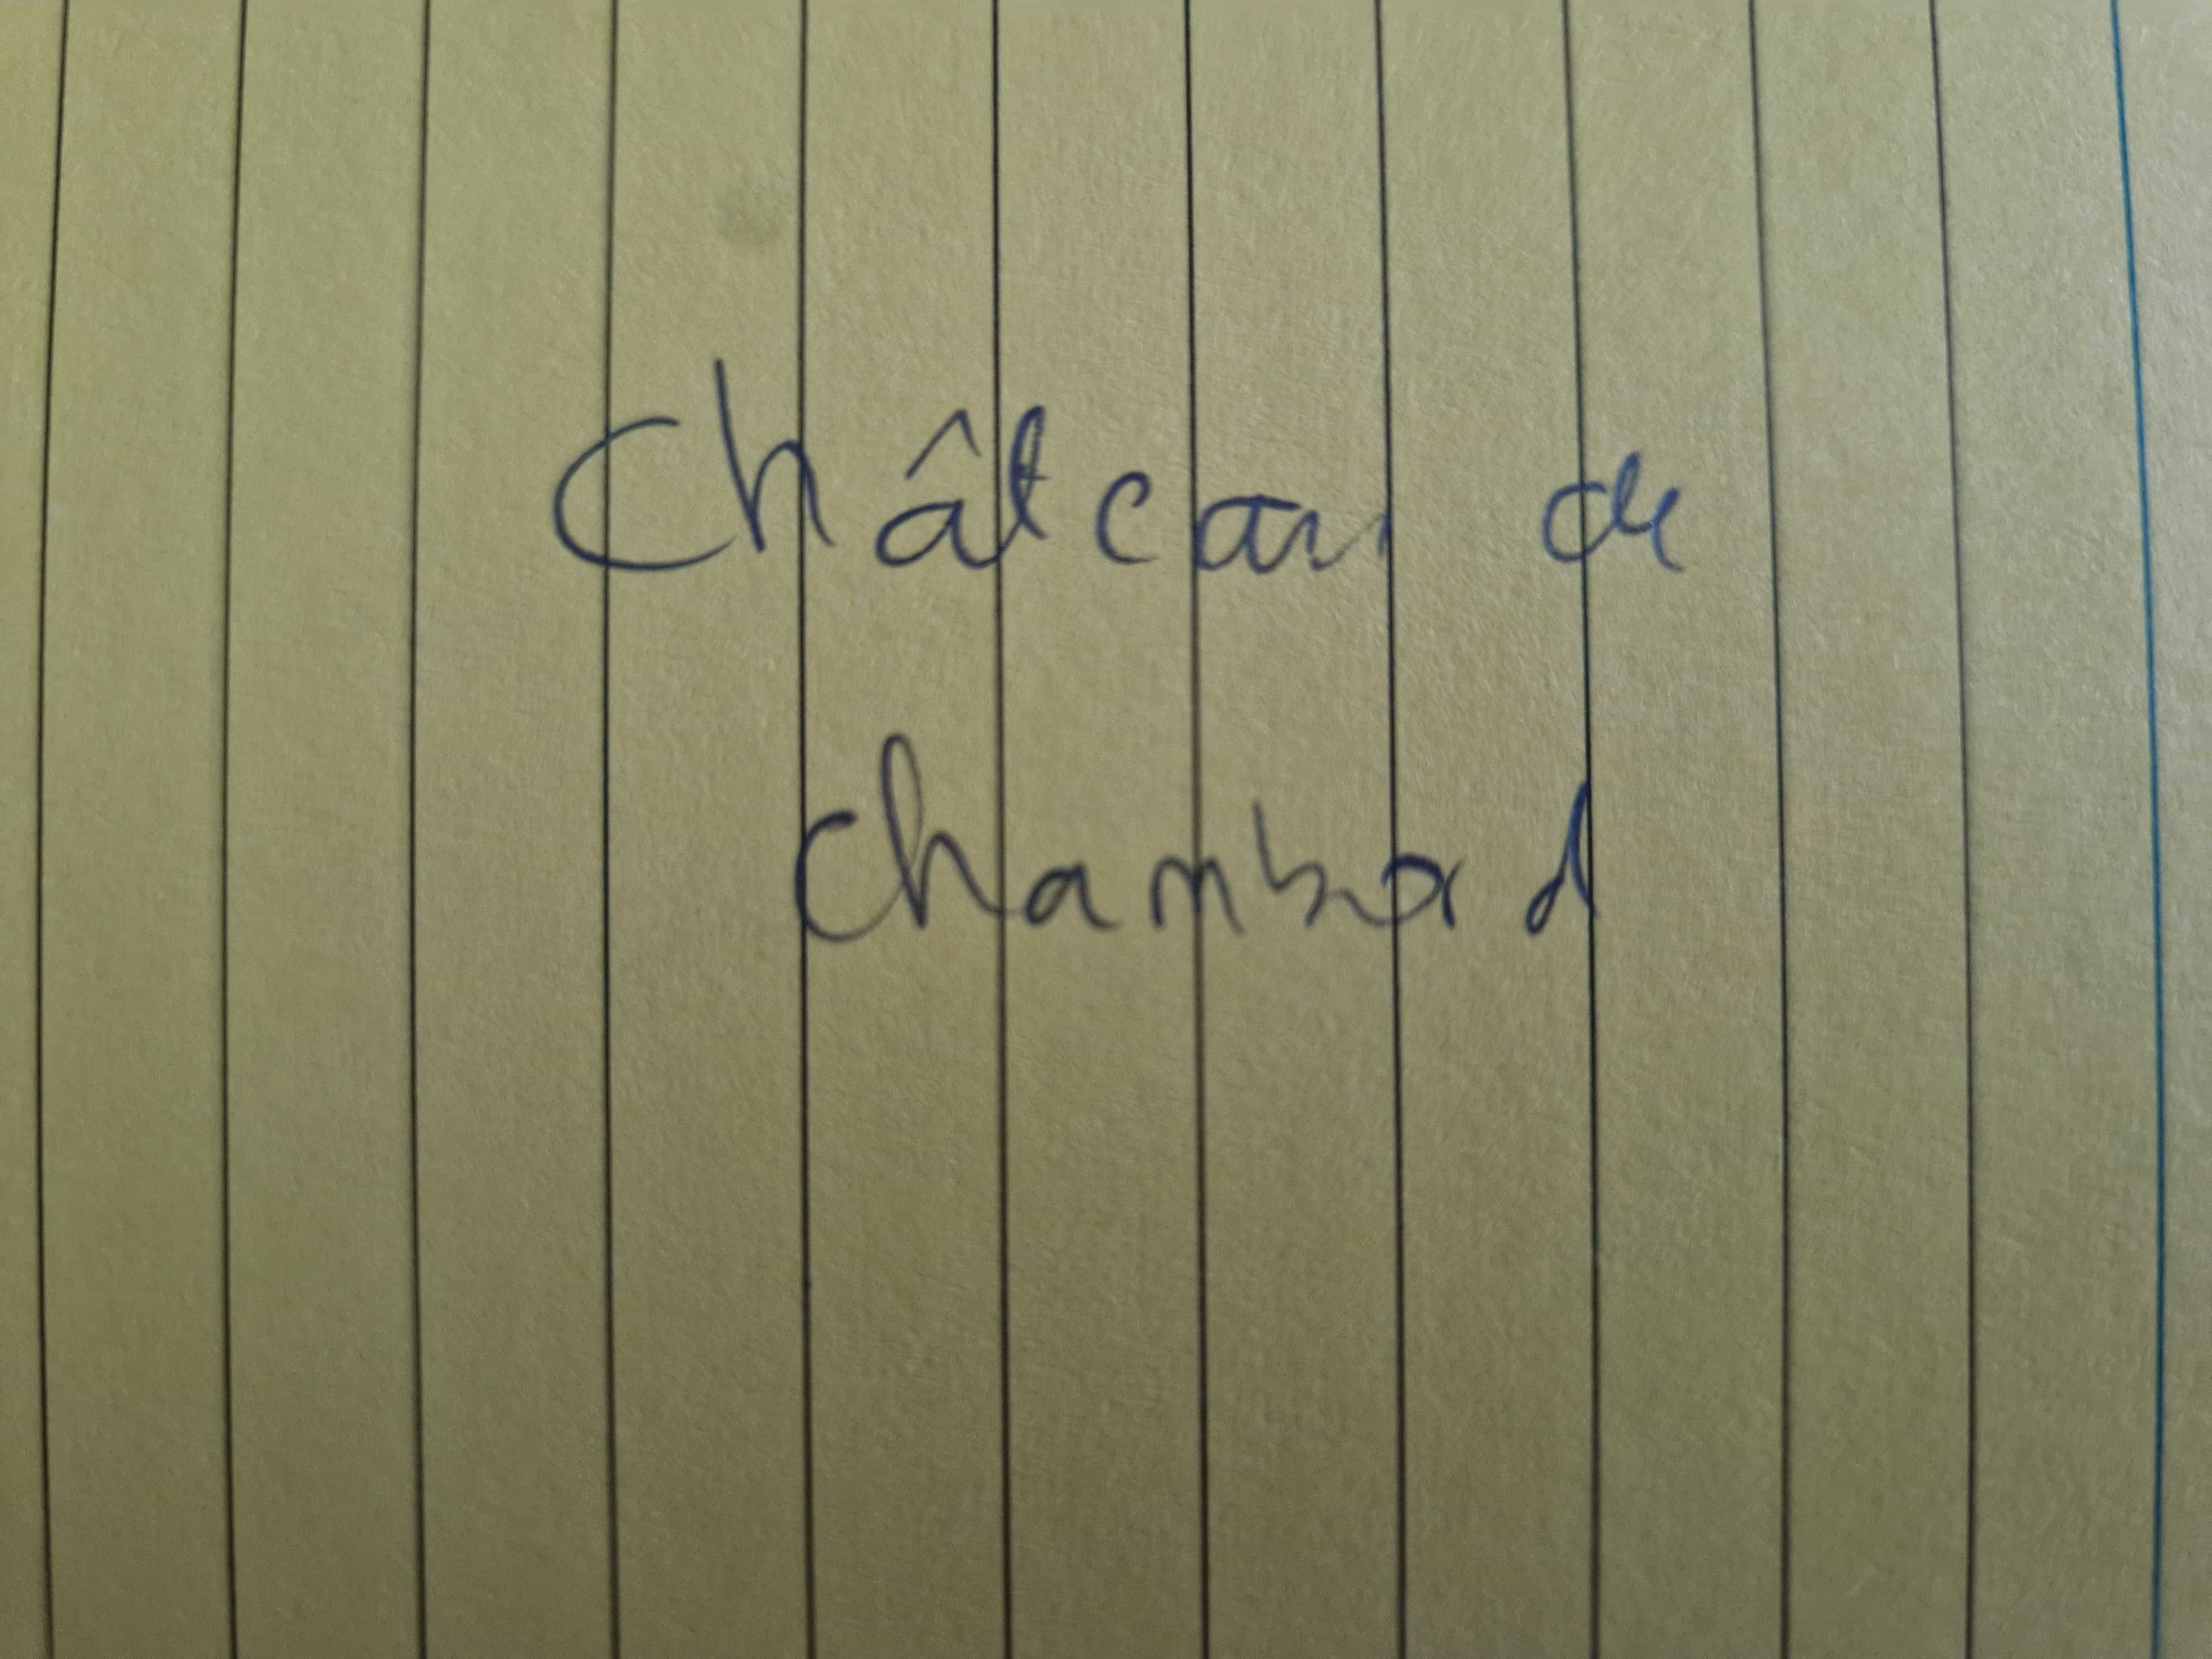 Château de
Chambord